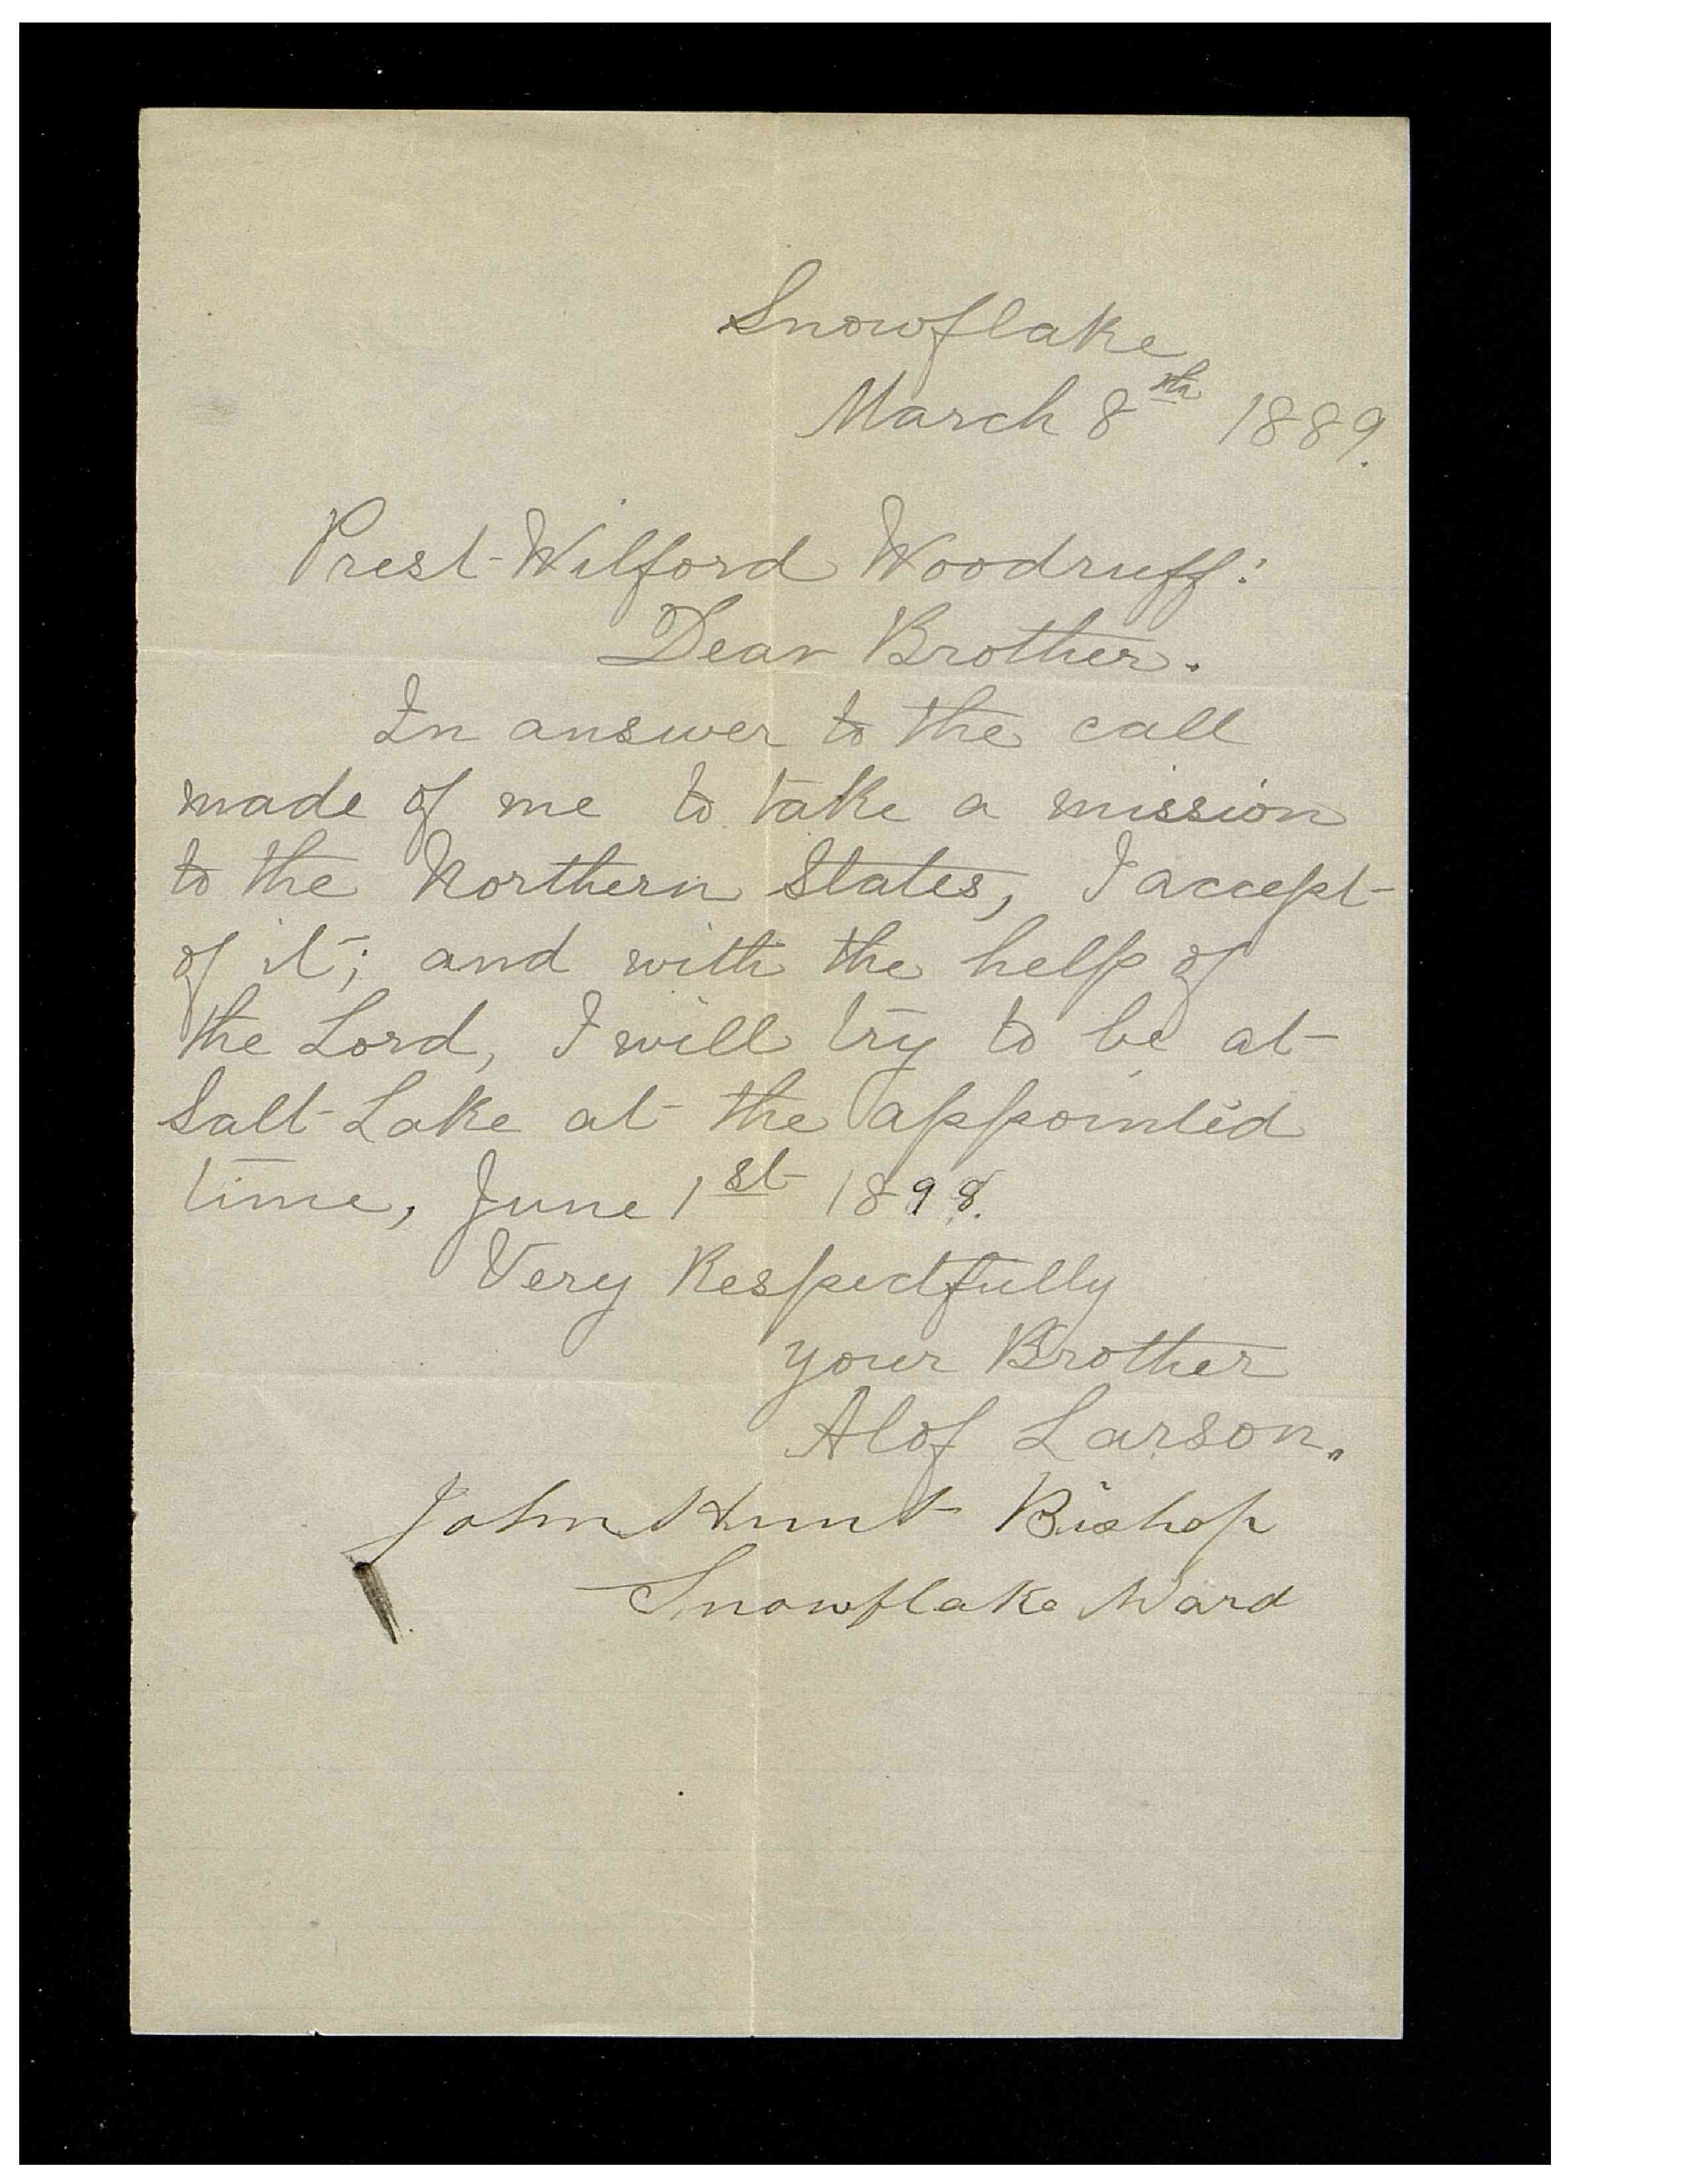 Snowflake,
March 8th 1889.
Prest Wilford Woodruff:
Dear Brother.
In answer to the call
made of me to take a mission
to the Northern States, I accept
of it; and with the help of
the Lord, I will try to be at
Salt Lake at the appointed
time, June 1st 1898.
Very Respectfully
your Brother
Alof Larson.
John Hunt Bishop
Snowflake Ward